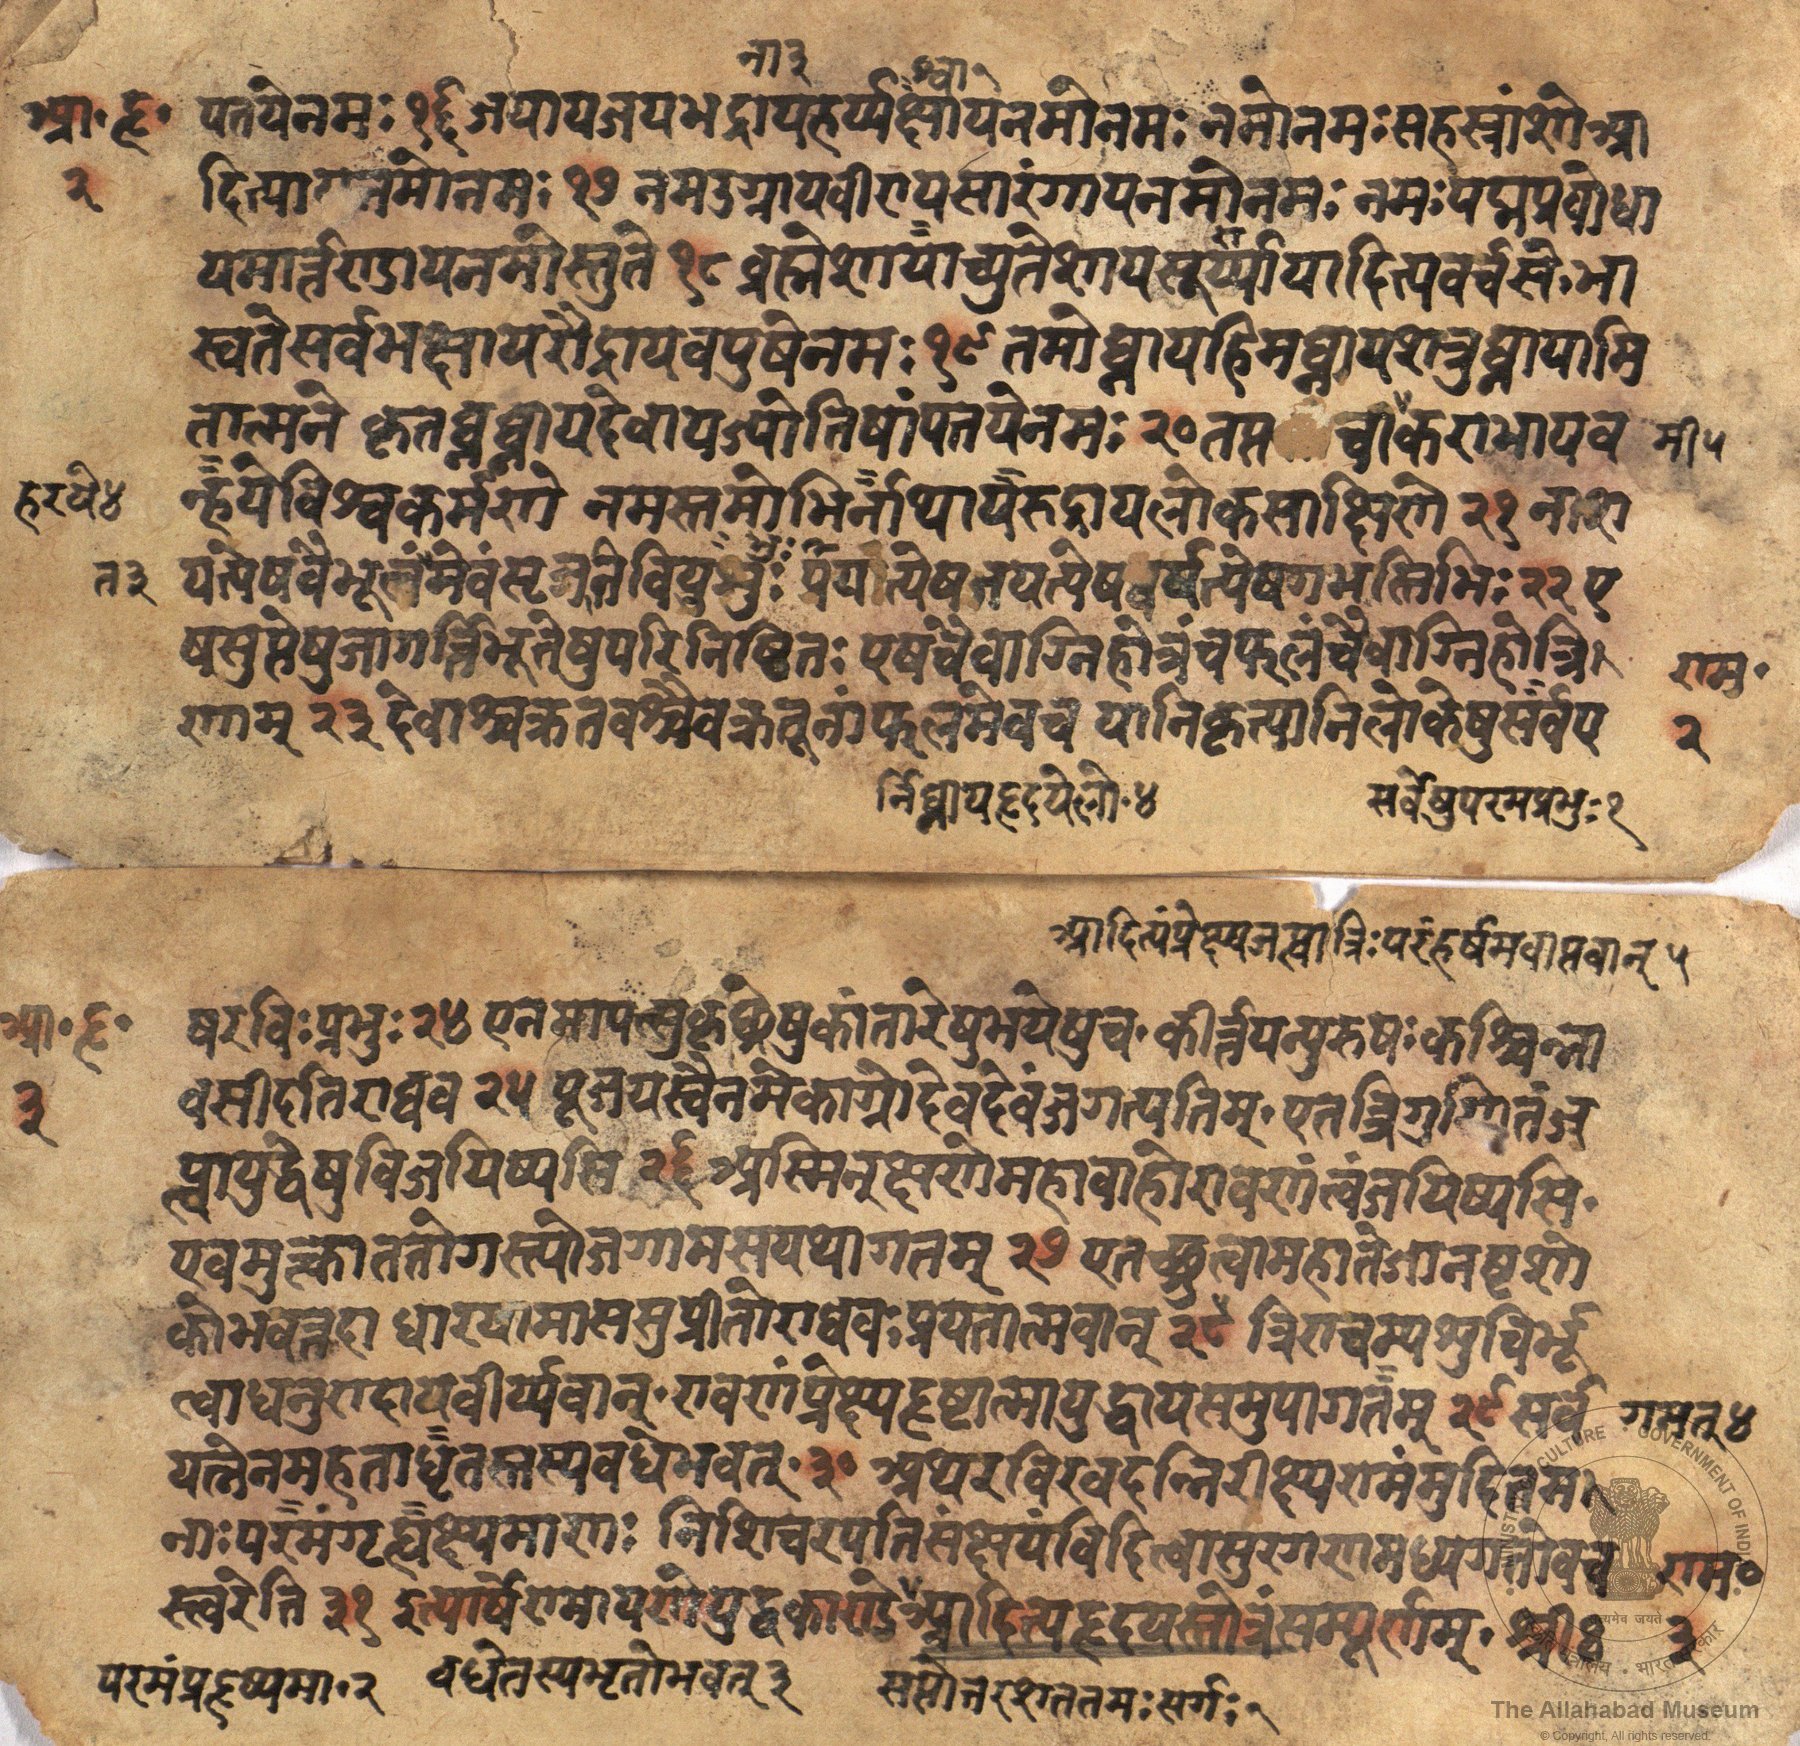 ना ३ श्वा १
आ॰ हृ॰ पतये नमः १६ जयाय जयभद्राय हर्य्यक्षाय नमो नमः नमो नमः सहस्रांशो आ
२ दित्याय नमो नमः १७ नम उग्राय वीराय सारंगाय नमो नमः नमः पद्मप्रबोधा
य मार्त्तण्डाय नमोस्तुते १८ ब्रह्मेशायाच्युतेशाय सूर्य्यायादित्यवर्चसे॰ भा
स्वते सर्वभक्षाय रौद्राय वपुषे नमः १९ तमोघ्नाय हिमघ्नाय शत्रुघ्नायामि
तात्मने कृतघ्नघ्नाय देवाय ज्योतिषां पतये नमः २० तप्त चीकराभाय व मी ५
हरये ४ न्हये विश्वकर्मणे नमस्तमोभिर्न्नाथाय रुद्राय लोकसाक्षिणे २१ नाश
त ३ यत्येष वै भूतं मेवं सृजति प्रभुः पायत्येष तपत्येष वर्षत्येष गभस्तिभिः २२ ए
ष सुप्तेषु जागर्त्ति भूतेषु परिनिष्ठितः एष चैवाग्निहोत्रं च फलं चैवाग्निहोत्रि राम॰
णाम् २३ देवाश्च क्रतवश्चैव क्रतूनां फलमेव च यानि कृत्यानि लोकेषु सर्व ए २
र्निघ्नाय हृदये लो॰ ४ सर्वेषु परमप्रभुः १
आदित्यं प्रेक्ष्य जप्त्वा त्रिः परं हर्षमवाप्तवान् ५
आ॰ हृ॰ ष रविः प्रभुः २४ एनमापत्सु कृच्छ्रेषु कांतारेषु भयेषु च॰ कीर्त्तयन्पुरुषः कश्चिन्ना
३ वसीदति राघव २५ पूजयस्वैनमेकाग्रो देवदेवं जगत्पतिम्॰ एतत्त्रिगुणितं ज
प्त्वा युद्धेषु विजयिष्यसि २६ अस्मिन् क्षणे महाबाहो रावणं त्वं जयिष्यसि॰
एवमुत्क्वा ततोगस्त्यो जगाम स यथागतम् २७ एतच्छ्रुत्वा महातेजा नष्टशो
कोभवत्तदा धारयामास सुप्रीतो राघवः प्रयतात्मवान् २८ त्रिराचम्य शुचिर्भू
त्वा धनुरादाय वीर्य्यवान्॰ रावणं प्रेक्ष्य हृष्टात्मा युद्धाय समुपागतम् २९ सर्व गमत् ४
यत्नेन महता धृतस्तस्य वधेभवत्॰ ३० अथ रविरवदन्निरीक्ष्य रामं मुदितम
नाः परमं गृह्यक्ष्यमाणः निशिचरपतिसंक्षयं विदित्वा सुरगणमध्यगतो वच राम॰
स्त्वरेति ३१ इत्यार्षे रामायणे युद्धकाण्डे आदित्यहृदयस्तोत्रं सम्पूर्णम्॰ श्री ३
परमं प्रहृष्यमा॰ २ वधे तस्य भृतोभवत् ३ सप्तोत्तरशततमः सर्गः १
MINISTRY OF CULTURE · GOVERNMENT OF INDIA
सत्यमेव जयते
The Allahabad Museum
© Copyright, All rights reserved.